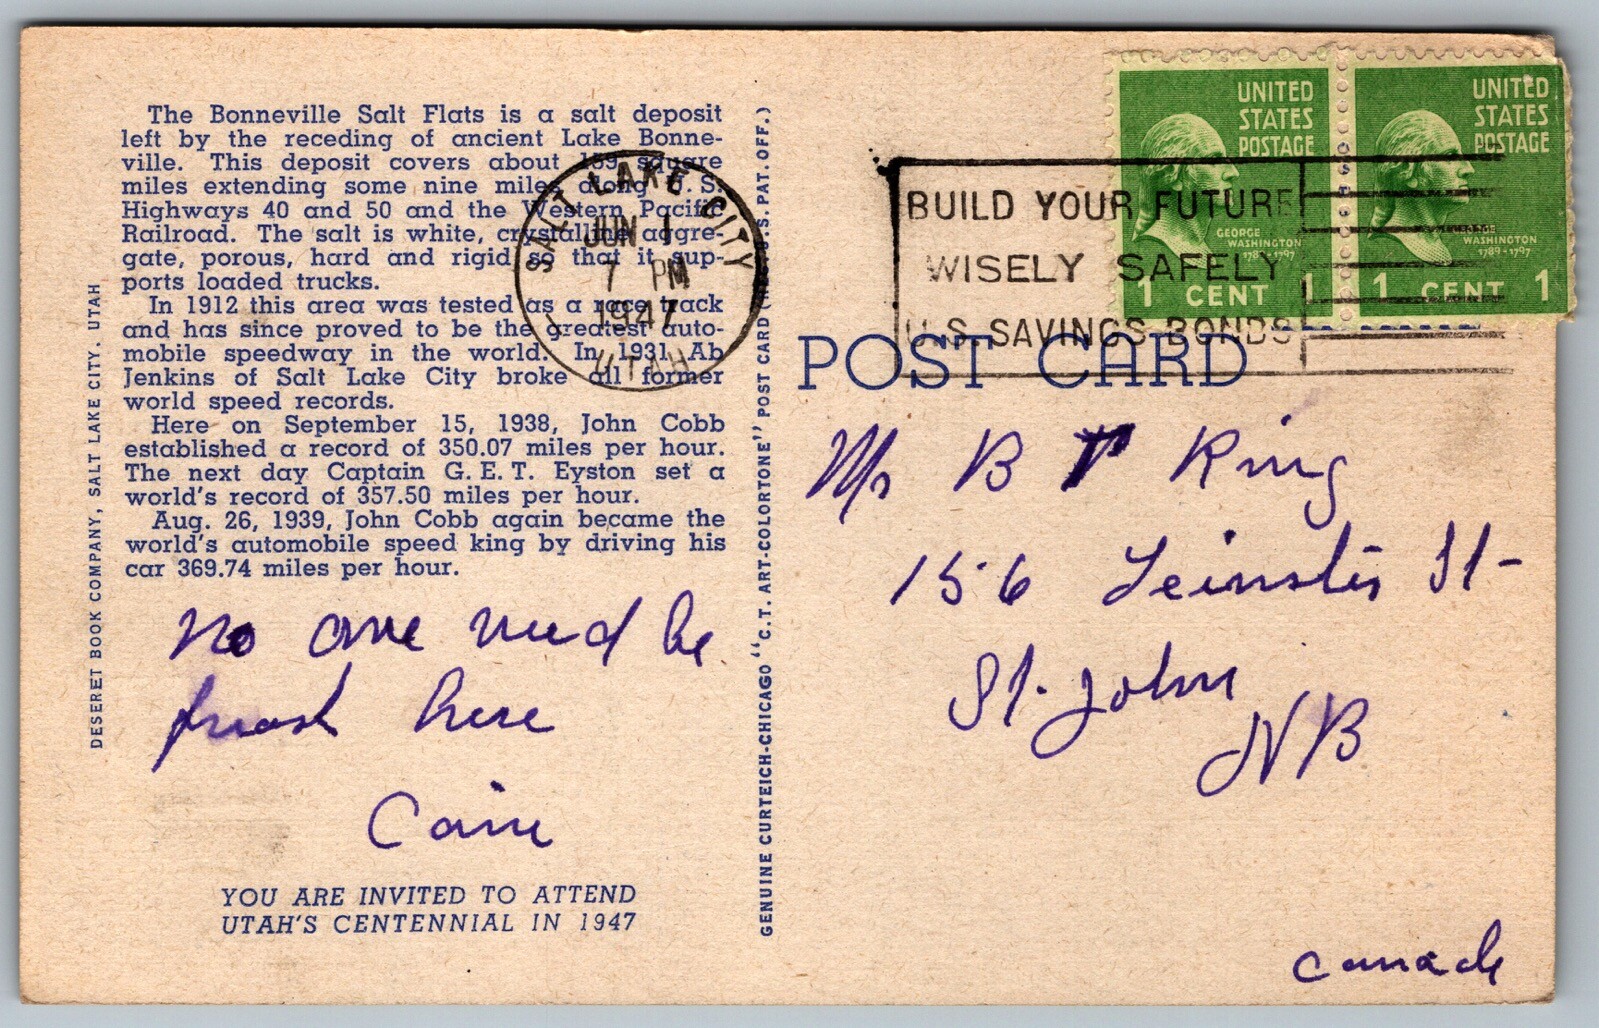 The Bonneville Salt Flats is a salt deposit
left by the receding of ancient Lake Bonne-
ville. This deposit covers about 159 square
miles extending some nine miles along U. S.
Highways 40 and 50 and the Western Pacific
Railroad. The salt is white, crystalline aggre-
gate, porous, hard and rigid so that it sup-
ports loaded trucks.
In 1912 this area was tested as a race track
and has since proved to be the greatest auto-
mobile speedway in the world. In 1931 Ab
Jenkins of Salt Lake City broke all former
world speed records.
Here on September 15, 1938, John Cobb
established a record of 350.07 miles per hour.
The next day Captain G. E. T. Eyston set a
world's record of 357.50 miles per hour.
Aug. 26, 1939, John Cobb again became the
world's automobile speed king by driving his
car 369.74 miles per hour.
no one need be
here
YOU ARE INVITED TO ATTEND
UTAH'S CENTENNIAL IN 1947
DESERET BOOK COMPANY, SALT LAKE CITY, UTAH
SALT LAKE CITY
JUN 1
7 PM
1947
UTAH
GENUINE CURTEICH-CHICAGO "C.T. ART-COLORTONE" POST CARD (REG. U.S. PAT. OFF.)
BUILD YOUR FUTURE
WISELY SAFELY
U.S. SAVINGS BONDS
UNITED
STATES
POSTAGE
GEORGE
WASHINGTON
1789-1797
1 CENT 1
UNITED
STATES
POSTAGE
GEORGE
WASHINGTON
1789-1797
1 CENT 1
POST CARD
Mr B King
156 Leinster St-
St. John
NB
Canada